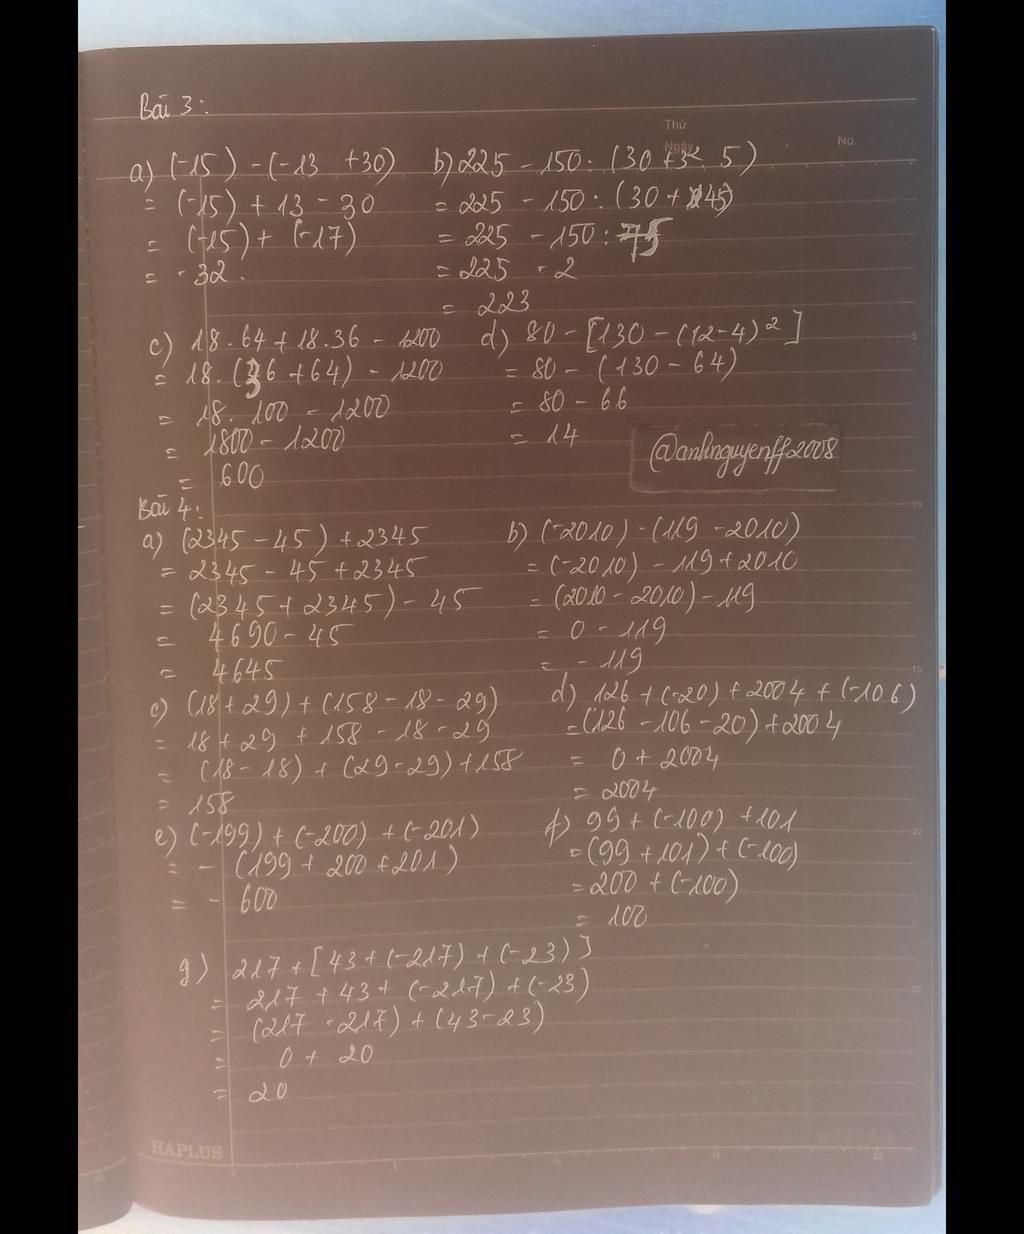 Bài 3:
Thứ
Ngày
No.
a) (-15) - (-13 +30)
= (-15) + 13 - 30
= (-15) + (-17)
= -32.
b) 225 - 150 : (30 + 3² . 5)
= 225 - 150 : (30 + 45)
= 225 - 150 : 75
= 225 - 2
= 223
c) 18.64 + 18.36 - 1200
= 18.(36 + 64) - 1200
= 18. 100 - 1200
= 1800 - 1200
= 600
d) 80 - [130 - (12-4)²]
= 80 - (130 - 64)
= 80 - 66
= 14
@anhnguyenff2008
Bài 4:
a) (2345 - 45) + 2345
= 2345 - 45 + 2345
= (2345 + 2345) - 45
= 4690 - 45
= 4645
b) (-2010) - (119 - 2010)
= (-2010) - 119 + 2010
= (2010 - 2010) - 119
= 0 - 119
= - 119
c) (18 + 29) + (158 - 18 - 29)
= 18 + 29 + 158 - 18 - 29
= (18 - 18) + (29 - 29) + 158
= 158
d) 126 + (-20) + 2004 + (-106)
= (126 - 106 - 20) + 2004
= 0 + 2004
= 2004
e) (-199) + (-200) + (-201)
= - (199 + 200 + 201)
= - 600
f) 99 + (-100) + 101
= (99 + 101) + (-100)
= 200 + (-100)
= 100
g) 217 + [43 + (-217) + (-23)]
= 217 + 43 + (-217) + (-23)
= (217 - 217) + (43 - 23)
= 0 + 20
= 20
HAPLUS